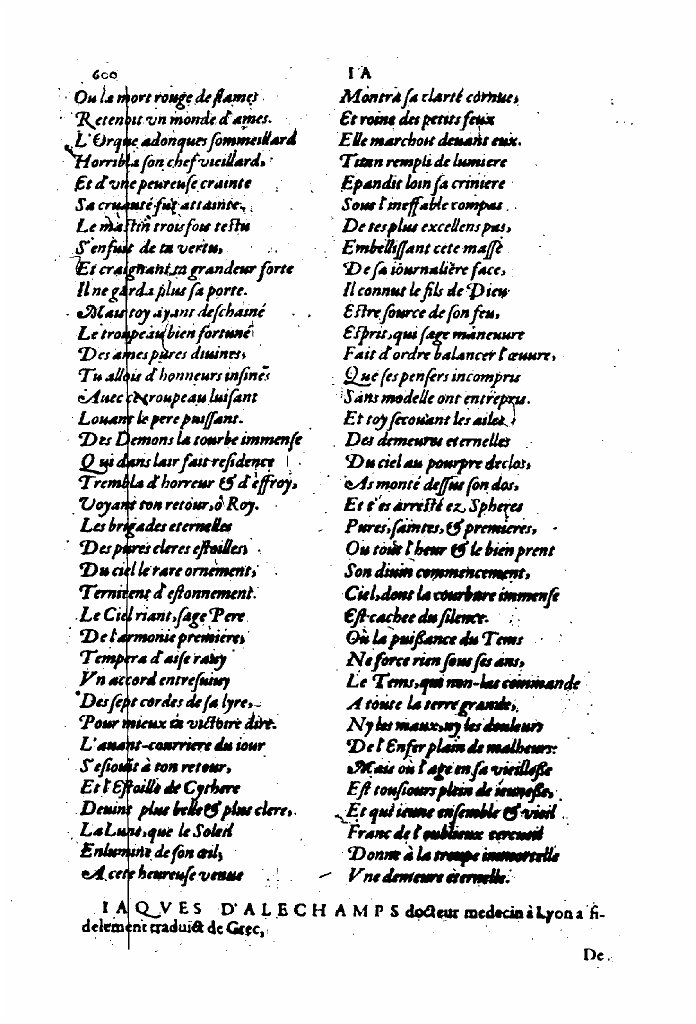 600
IA
Ou la mort rouge de flames
Retenoit vn monde d'ames.
L'Orque adonques sommeillard
Horribla son chef vieillard,
Et d'vne peureuse crainte
Sa cruauté fut attainte,
Le mastin trousfou testu
S'enfuit de ta vertu,
Et craignant ta grandeur forte
Il ne garda plus sa porte.
Mais toy ayant deschainé
Le troupeau bien fortuné
Des ames pures diuines,
Tu allois d'honneurs infinés
Auec ce troupeau luisant
Louant le pere puissant.
Des Demons la tourbe immense
Qui dans lair fait residence
Trembla d'horreur & d'effroy,
Voyant ton retour, ô Roy.
Les brigades eternelles
Des pures cleres estoilles,
Du ciel le rare ornement,
Ternirent d'estonnement.
Le Ciel riant, sage Pere
De l'armonie premiere,
Tempera d'aise rauy
Vn accord entresuiuy
Des sept cordes de sa lyre,
Pour mieux ta victoire dire.
L'auant-courriere du iour
S'esiouit à ton retour,
Et l'Estoille de Cythere
Deuint plus belle & plus clere,
La Lune, que le Soleil
Enlumine de son œil,
A cete heureuse venue
Montra sa clarté cornue,
Et roine des petits feux
Elle marchoit deuant eux.
Titan rempli de lumiere
Epandit loin sa criniere
Sous l'ineffable compas
De tes plus excellens pas,
Embellissant cete masse
De sa iournalière face,
Il connut le fils de Dieu
Estre source de son feu,
Esprit, qui sage maneuure
Fait d'ordre balancer l'œuure,
Que ses pensers incompris
Sans modelle ont entrepris.
Et toy secouant les ailes
Des demeures eternelles
Du ciel au pourpre declos,
As monté dessus son dos,
Et t'es arresté ez Spheres
Pures, saintes, & premieres,
Ou tout l'heur & le bien prent
Son diuin commencement,
Ciel, dont la courbure immense
Est cachee du silence.
Où la puissance du Tems
Ne force rien sous ses ans,
Le Tems, qui non-las commande
A toute la terre grande,
Ny les maux, ny les douleurs
De l'Enfer plain de malheurs:
Mais où l'age en sa vieillesse
Est tousiours plein de ieunesse,
Et qui ieune ensemble & vieil
Franc de l'oublieux cercueil
Donne à la troupe immortelle
Vne demeure eternelle.
IAQVES D'ALECHAMPS docteur medecin à Lyon a fi-
delement traduict de Grec,
De